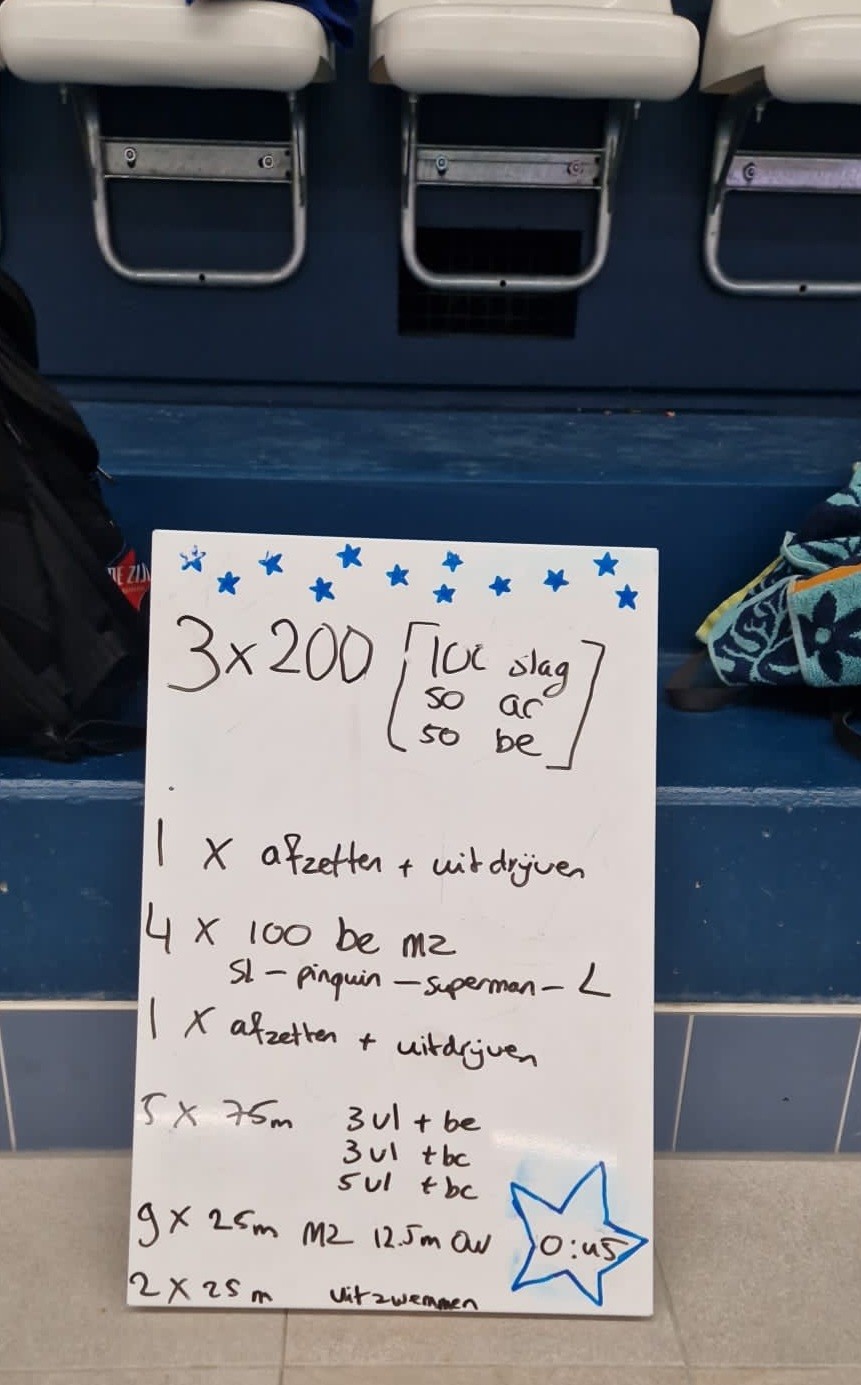 3x200 [100 slag
50 ac
50 be]
1 x afzetten + uitdrijven
4 x 100 be m2
sl - pinguin - superman - L
1 x afzetten + uitdrijven
5 x 75m 3vl + be
3vl + bc
5vl + bc
9 x 25m M2 12.5m OW 0:45
2 x 25m uitzwemmen